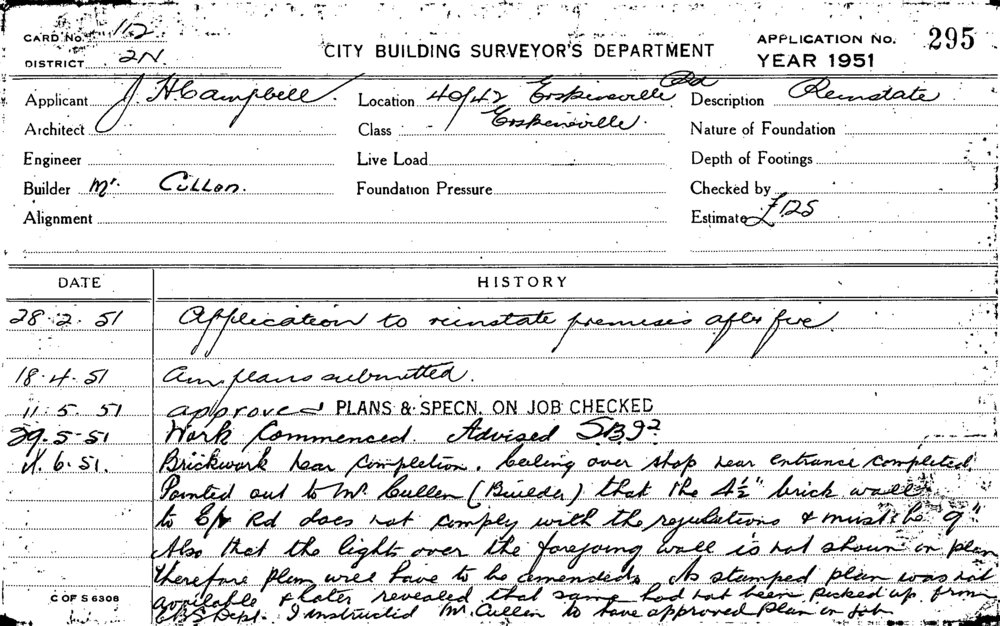 CARD No. 112
DISTRICT 2N
CITY BUILDING SURVEYOR'S DEPARTMENT
APPLICATION No. 295
YEAR 1951
Applicant J H Campbell.
Location 40/42 Erskineville Rd
Erskineville.
Description Reinstate
Architect
Class
Nature of Foundation
Engineer
Live Load
Depth of Footings
Builder Mr. Cullen.
Foundation Pressure
Checked by
Alignment
Estimate £125
DATE HISTORY
28.2.51 Application to reinstate premises after fire
18.4.51 Am. plans submitted.
11.5.51 approved PLANS & SPECN. ON JOB CHECKED
29.5.51 Work Commenced. Advised
.6.51. Brickwork near completion. Ceiling over shop near entrance completed.
Pointed out to Mr Cullen (Builder) that the 4½" brick wall
to Rd does not comply with the regulations & must be 9"
Also that the light over the foregoing wall is not shown on plan
therefore plan will have to be amended. As stamped plan was not
available & later revealed that same had not been picked up from
C.B.S Dept. I instructed Mr. Cullen to have approved Plan on job
C OF S 6308